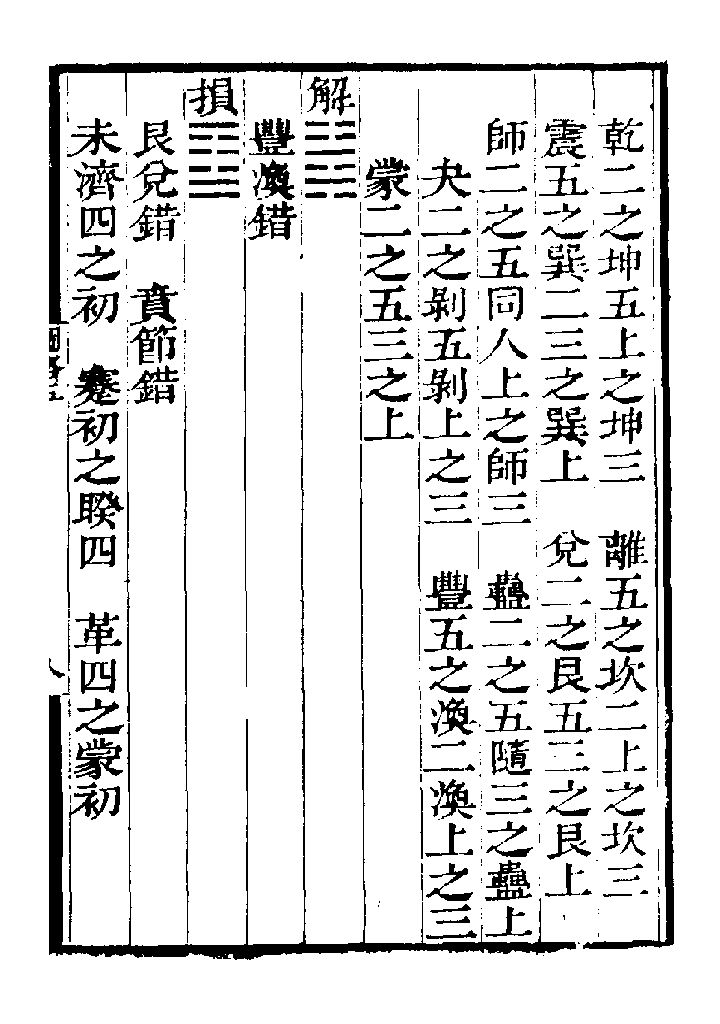 乾二之坤五上之坤三　離五之坎二上之坎三
震五之巽二三之巽上　兌二之艮五三之艮上
師二之五同人上之師三　蠱二之五隨三之蠱上
夬二之剝五剝上之三　豐五之渙二渙上之三
蒙二之五三之上
解䷧
豐渙錯
損䷨
艮兌錯　賁節錯
未濟四之初　蹇初之睽四　革四之蒙初